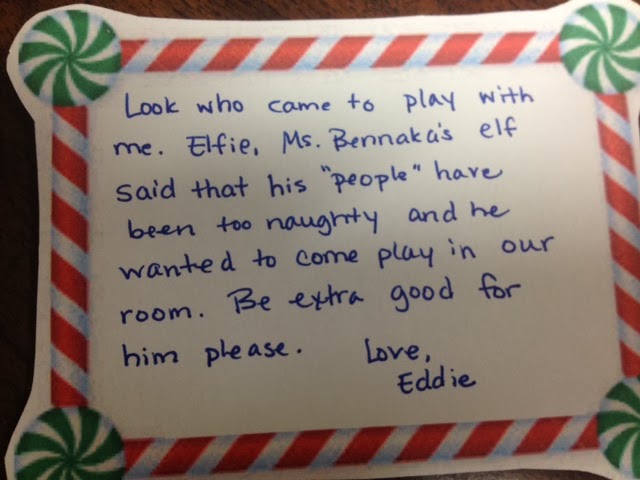 Look who came to play with
me. Elfie, Ms. Bennaka's elf
said that his "people" have
been too naughty and he
wanted to come play in our
room. Be extra good for
him please. Love,
Eddie